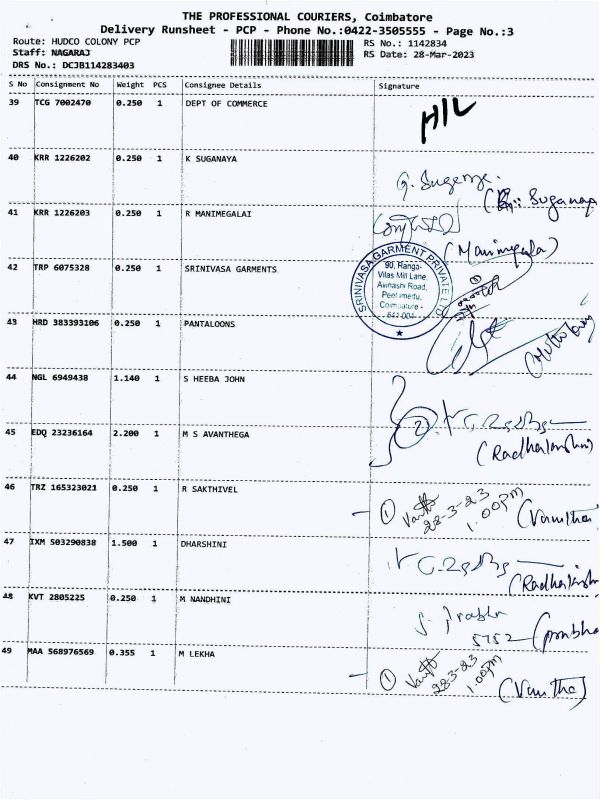 THE PROFESSIONAL COURIERS, Coimbatore
Delivery Runsheet - PCP - Phone No.:0422-3505555 - Page No.:3
Route: HUDCO COLONY PCP
RS No.: 1142834
Staff: NAGARAJ
RS Date: 28-Mar-2023
DRS No.: DCJB114283403
S No Consignment No Weight PCS Consignee Details Signature
39 TCG 7002470 0.250 1 DEPT OF COMMERCE
40 KRR 1226202 0.250 1 K SUGANAYA
41 KRR 1226203 0.250 1 R MANIMEGALAI
(Manimegala)
42 TRP 6075328 0.250 1 SRINIVASA GARMENTS
SRINIVASA GARMENT PRIVATE LTD
90, Ranga-
Vilas Mill Lane
Avinashi Road,
Peelamedu,
Coimbatore -
641 004
43 HRD 383393106 0.250 1 PANTALOONS
44 NGL 6949438 1.140 1 S HEEBA JOHN
2
45 EDQ 23236164 2.200 1 M S AVANTHEGA
46 TRZ 165323021 0.250 1 R SAKTHIVEL
1 28-3-23
1.00pm
(Vanitha)
47 IXM 503290838 1.500 1 DHARSHINI
48 KVT 2805225 0.250 1 M NANDHINI
5752 (prabha
49 MAA 568976569 0.355 1 M LEKHA
1 28-3-23
1.00pm
(Vanitha)